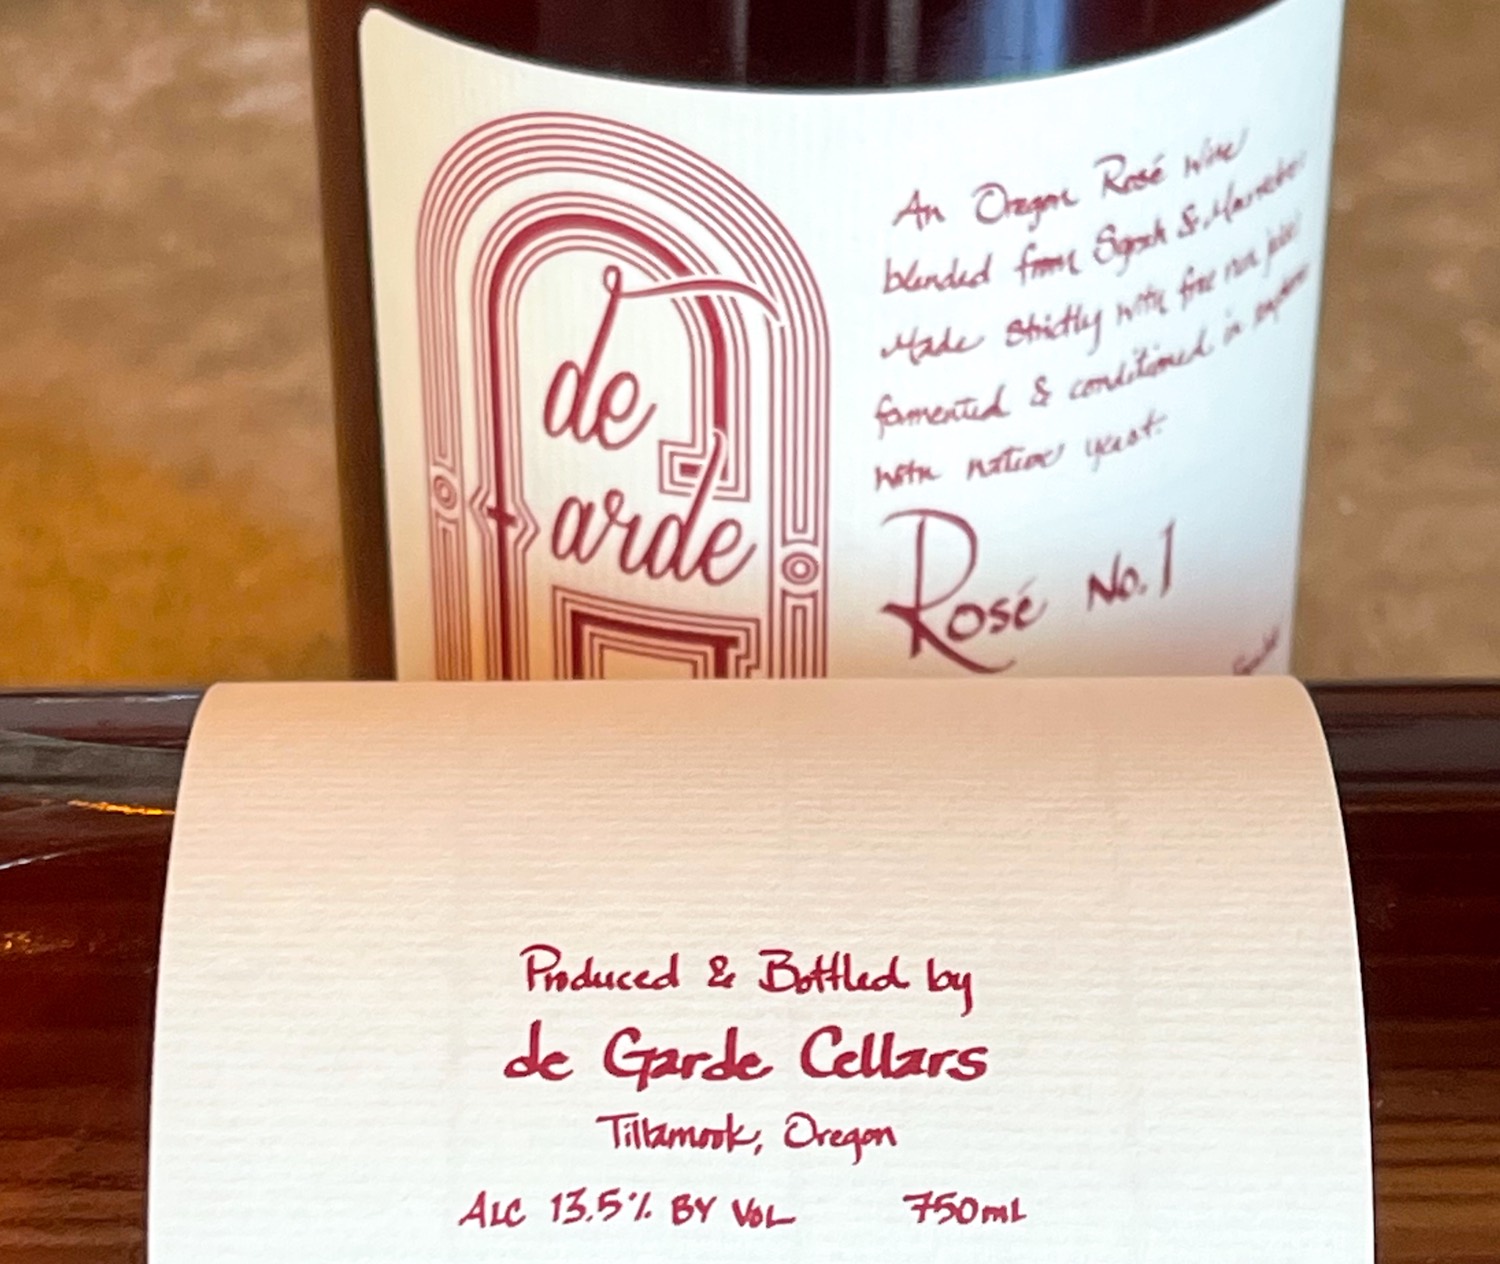 de
Garde
An Oregon Rosé wine
blended from Syrah &
Made strictly with free run juice
fermented & conditioned in
with native yeast.
Rosé No. 1
Produced & Bottled by
de Garde Cellars
Tillamook, Oregon
ALC 13.5% BY VOL 750mL